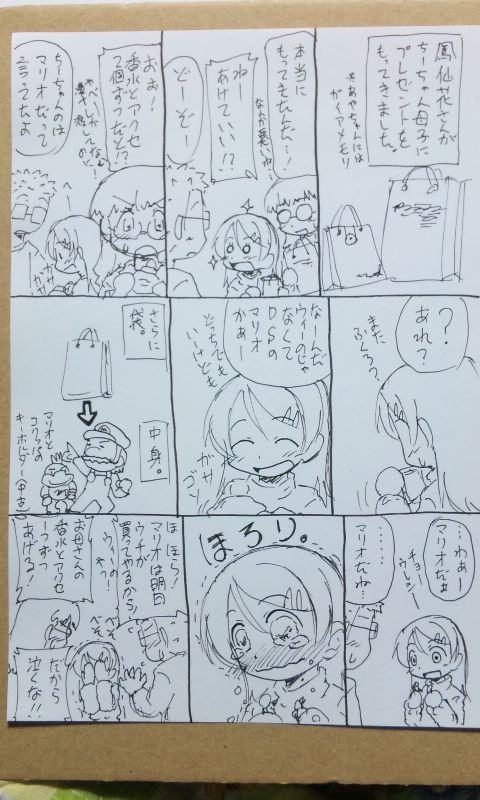 鳳仙花さんが
ちーちゃん母子に
プレゼントを
もってきました。
本当に
もってきたんだ…!
なんか悪いわ…
ねー
あけていい!?
どーぞー
おぉ!
香水とアクセ
2個ずつだと!?
ちーちゃんのは
マリオだって
言ってたよ
ガサ
ガサ
?
あれ?
また
ふくろ?
なーんだ
ウィーのじゃ
なくて
DSの
マリオ
かぁー
どっちでも
いいけども
ガサ
ゴソ
さらに
袋。
中身。
マリオと
コクッパの
キーホルダー
…わぁー
マリオだぁ
チョー
ウレシー
……
マリオだね…
ほろり。
ほ、ほら!
マリオは明日
ウチが
買ってやるから!
お母さんの
香水とアクセ
一つずつ
あげる!
だから
泣くな!!